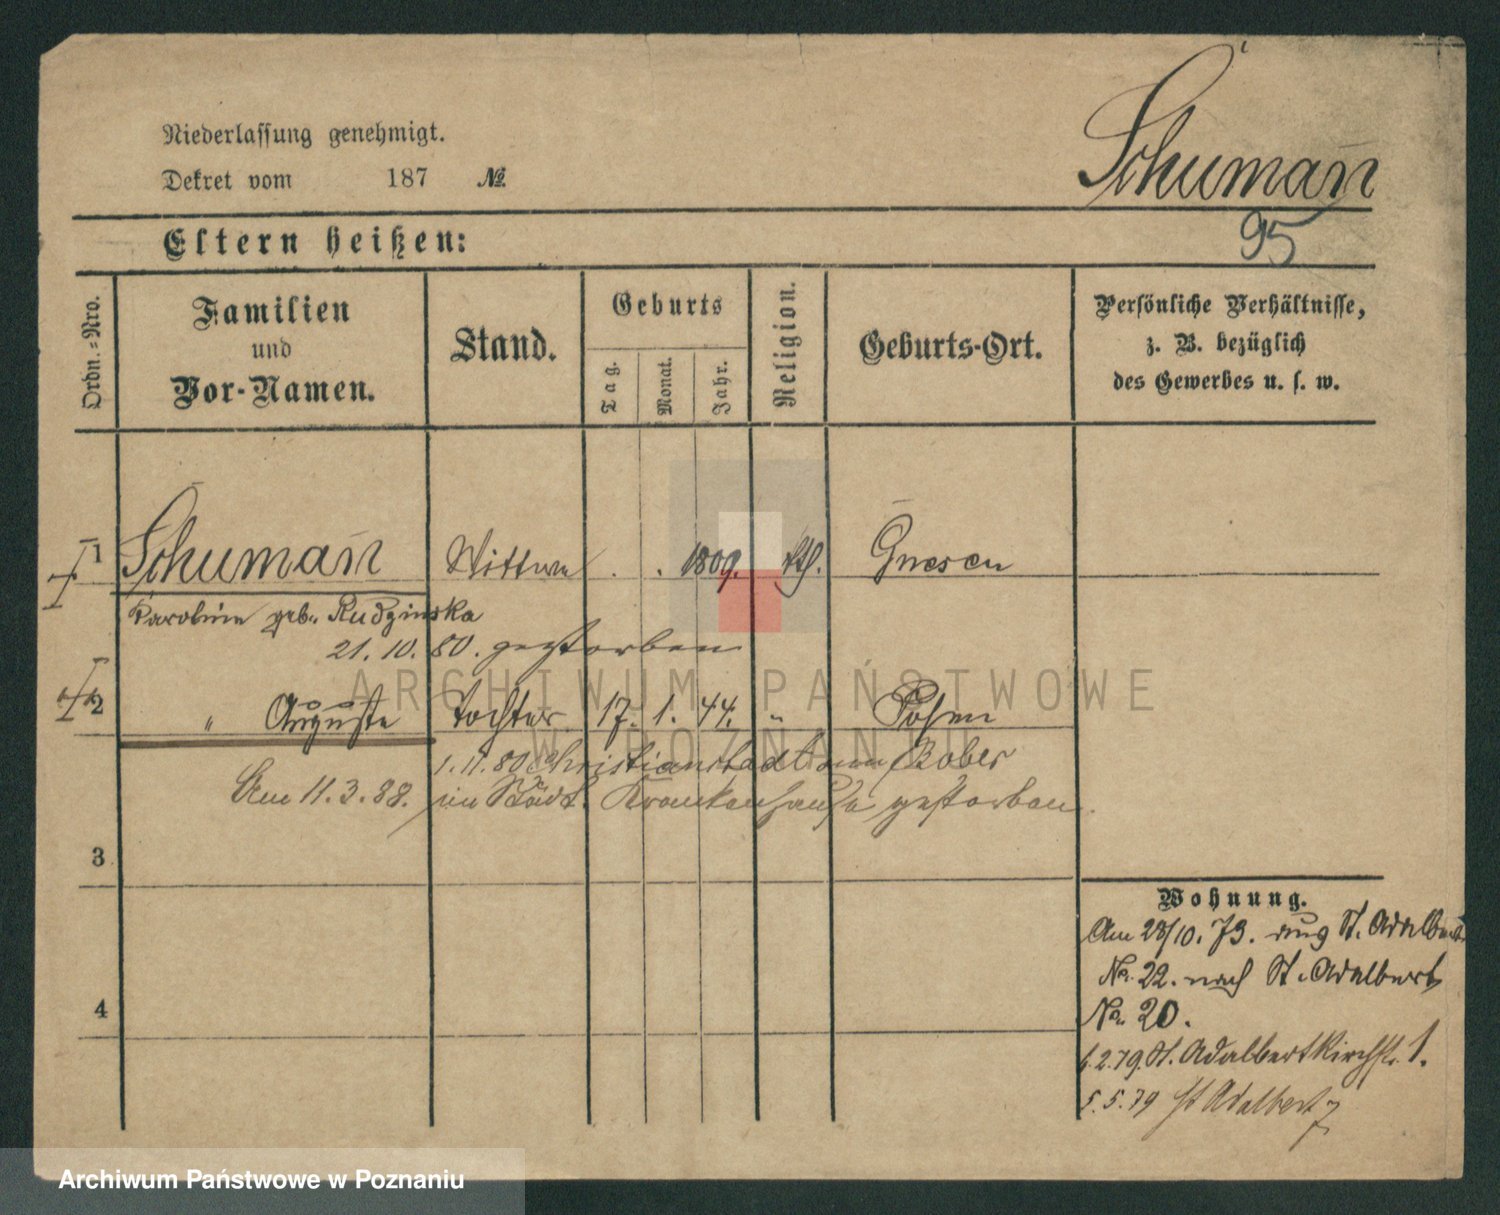 Niederlassung genehmigt.
Dekret vom 187 №
Schumañ
95
Eltern heißen:
Ordn.=Nro.
Familien
und
Vor-Namen.
Stand.
Geburts
Tag.
Monat.
Jahr.
Religion.
Geburts-Ort.
Persönliche Verhältnisse,
z. B. bezüglich
des Gewerbes u. s. w.
1 Schumañ Wittwe . . 1809. kth. Gnesen
Karoline geb. Rudzinska
21. 10. 80. gestorben
2 " Auguste Tochter 17. 1. 44. " Posen
1. 11. 80 Christianstadt Bober
Am 11. 3. 88. im Städt. Krankenhause gestorben.
3
4
Wohnung.
Am 28/10. 73. aus St. Adalbert
No. 22. nach St. Adalbert
No. 20.
2. 79. St. Adalbertkirchstr. 1.
5. 5. 79 St Adalbert 7
ARCHIWUM PAŃSTWOWE
W POZNANIU
Archiwum Państwowe w Poznaniu